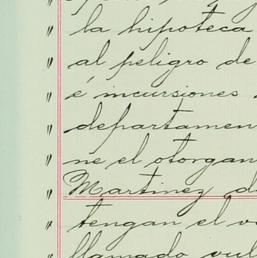 la hipoteca
al peligro de
é incursiones
departamen
ne el otorgan
Martinez d
tengan el v
llamado vul